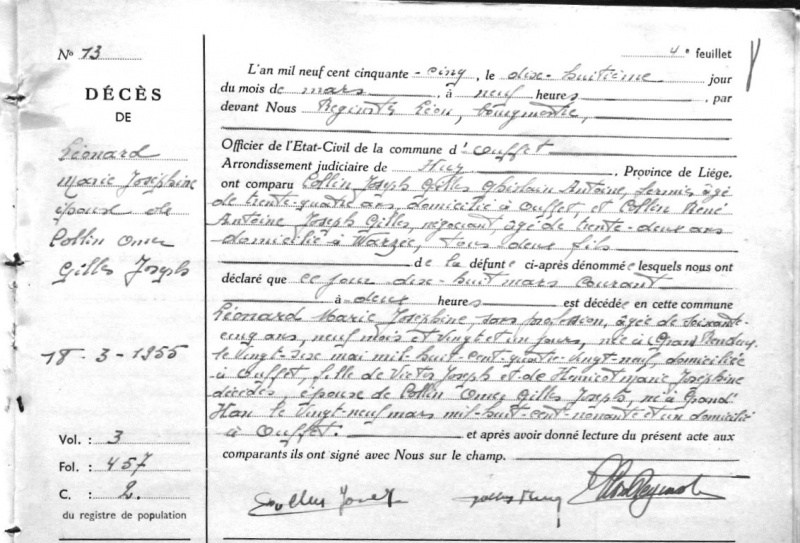 No 13
DÉCÈS
DE
Léonard
Marie Joséphine
épouse de
Collin Omer
Gilles Joseph
18-3-1955
Vol. : 3
Fol. : 457
C. : 2.
du registre de population
4e feuillet
L'an mil neuf cent cinquante-cinq, le dix-huitième jour
du mois de mars, à neuf heures, par
devant Nous Léon, bourgmestre,
Officier de l'Etat-Civil de la commune d'Ouffet
Arrondissement judiciaire de Huy, Province de Liége.
ont comparu Collin Joseph Gilles Ghislain Antoine, fermier âgé
de trente-quatre ans, domicilié à Ouffet et Collin René
Antoine Joseph Gilles, négociant âgé de trente-deux ans
domicilié à Warzée, tous deux fils
de la défunte ci-après dénommée lesquels nous ont
déclaré que ce jour dix-huit mars courant
à deux heures est décédée en cette commune
Léonard Marie Joséphine, sans profession, âgée de soixante-
cinq ans, neuf mois et vingt et un jours, née à
le vingt-six mai mil huit-cent-quatre-vingt-neuf, domiciliée
à Ouffet, fille de Victor Joseph et de Henricot Marie Joséphine
décédés, épouse de Collin Omer Gilles Joseph, né à Grand'
Han le vingt-neuf mars mil-huit-cent-nonante et un domicilié
à Ouffet. et après avoir donné lecture du présent acte aux
comparants ils ont signé avec Nous sur le champ.